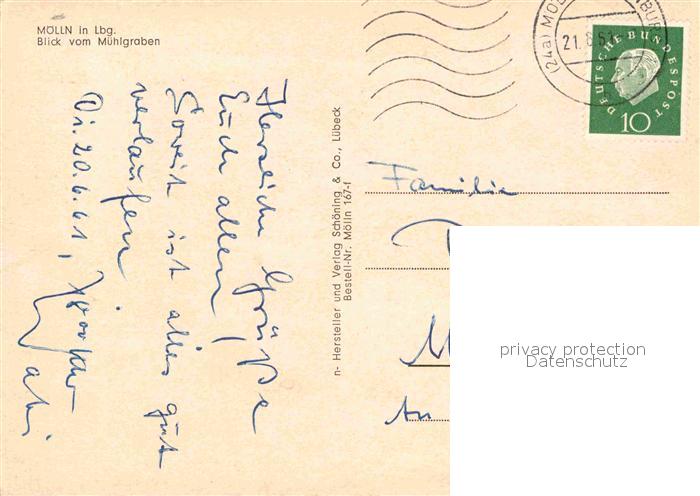 MÖLLN in Lbg.
Blick vom Mühlgraben
Herzliche Grüße
Euch allen,
Soweit ist alles gut
verlaufen.
Di. 20.6.61,
n- Hersteller und Verlag Schöning & Co., Lübeck
Bestell-Nr. Mölln 167-f
(24a)
21.6.61
DEUTSCHE BUNDESPOST
10
Familie
An
privacy protection
Datenschutz